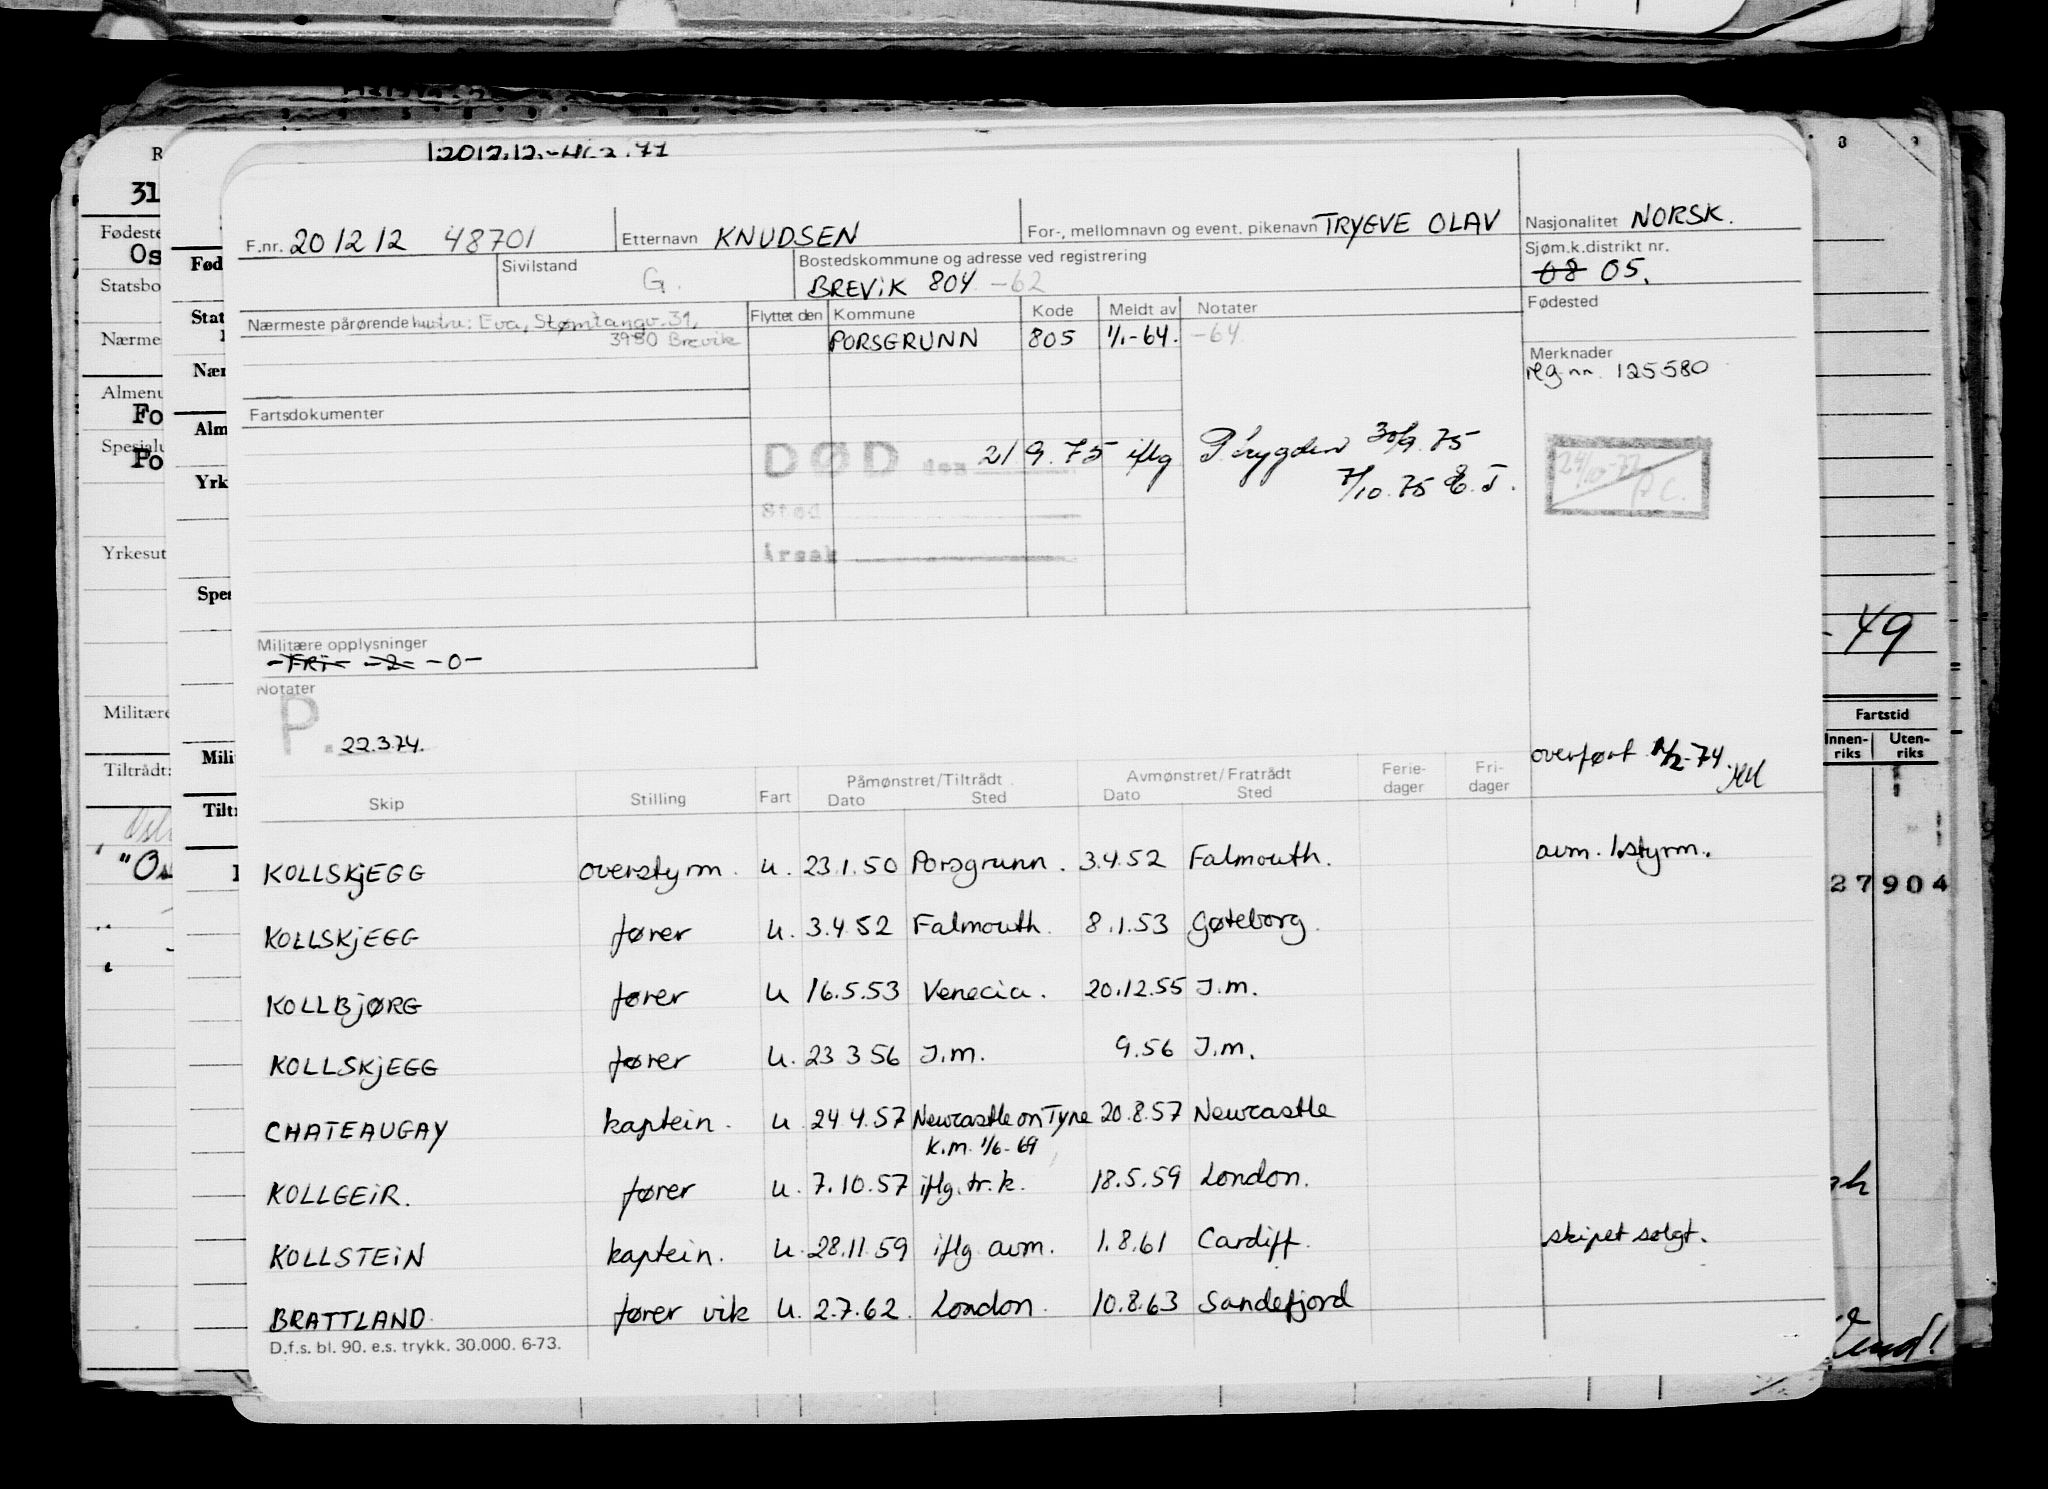 F.nr. 201212 48701 Etternavn KNUDSEN For-, mellomnavn og event. pikenavn TRYGVE OLAV Nasjonalitet NORSK.
Sivilstand G. Bostedskommune og adresse ved registrering Sjøm.k.distrikt nr.
BREVIK 804 -62 08 05.
Nærmeste pårørende hustru: Eva, Strømtangv. 31, Flyttet den Kommune Kode Meldt av Notater Fødested
3950 Brevik PORSGRUNN 805 1/1-64. -64
Merknader
reg.nr. 125580
Fartsdokumenter
DØD den 21 9.75 iflg P.trygden 30/9.75
7/10.75 E.T.
24/10-77
P C.
Sted
Årsak
Militære opplysninger
-FRI- -2- -0-
Notater
P. 22.3.74.
overført 1/2-74.
Skip Stilling Fart Påmønstret/Tiltrådt Dato Sted Avmønstret/Fratrådt Dato Sted Ferie-dager Fri-dager
KOLLSKJEGG overstyrm. U. 23.1.50 Porsgrunn. 3.4.52 Falmouth. avm. 1.styrm.
KOLLSKJEGG fører U. 3.4.52 Falmouth. 8.1.53 Gøteborg.
KOLLBJØRG fører U 16.5.53 Venecia. 20.12.55 I.m.
KOLLSKJEGG fører U. 23 3 56 I.m. 9.56 I.m.
CHATEAUGAY kaptein. U 24 4.57 Newcastle on Tyne 20.8.57 Newcastle
K.m. 1/6-69
KOLLGEIR. fører U. 7.10.57 iflg. tr. k. 18.5.59 London.
KOLLSTEIN kaptein. U. 28.11.59 iflg avm. 1.8.61 Cardiff. skipet solgt.
BRATTLAND fører vik U. 2.7.62. London. 10.8.63 Sandefjord
D.f.s. bl. 90. e.s. trykk. 30.000. 6-73.
31
Fødeste
Os
Statsbo
Nærme
Almenu
Fo
Spesialu
Fo
Yrkesut
Militære
Tiltrådt:
"Os
Fød
Stat
Nær
Alm
Yrk
Spes
Mili
Tilt
8
-49
Fartstid
Innen-riks Uten-riks
27904